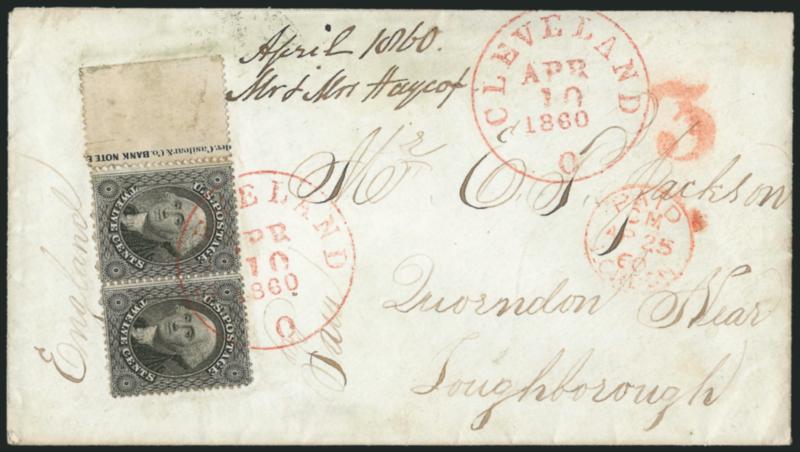 April 1860.
Mr & Mrs Haycox
CLEVELAND
APR
10
1860
O
3
Mr E. S. Jackson
Quorndon Near
Loughborough
England
PAID
25
60
Casilear & Co. BANK NOTE
U.S. POSTAGE
TWELVE CENTS
CLEVELAND
APR
10
1860
O
U.S. POSTAGE
TWELVE CENTS